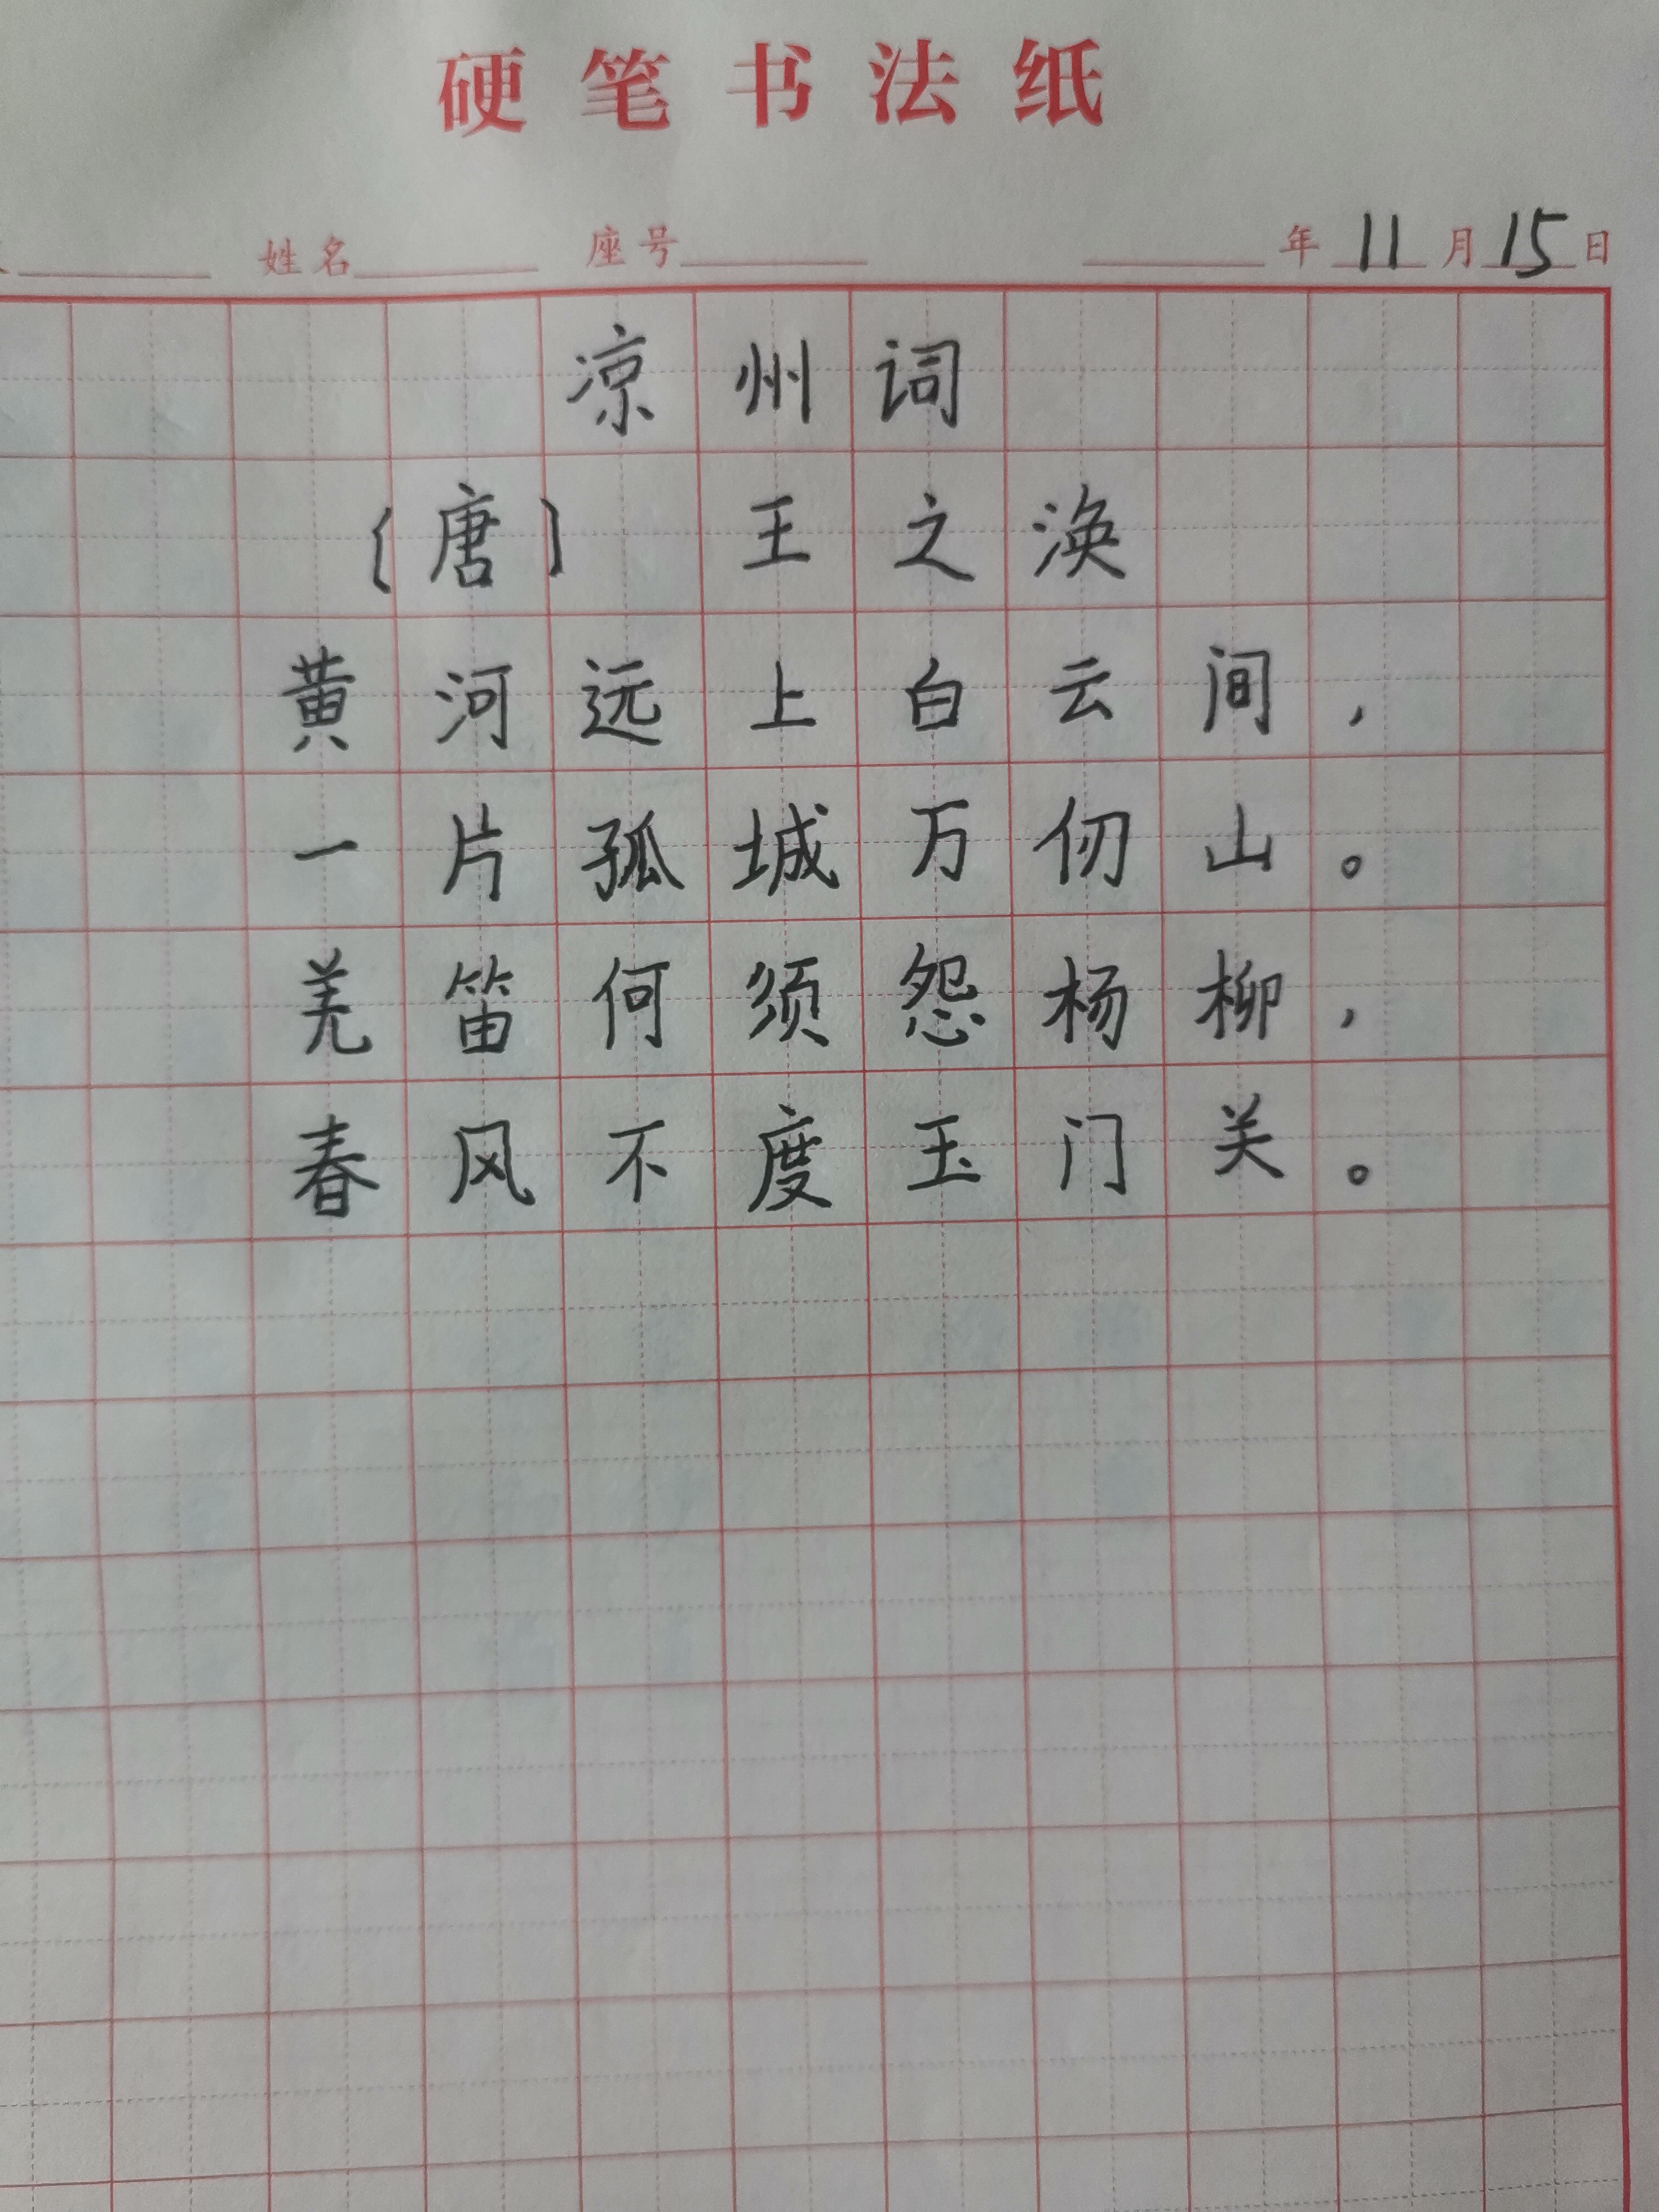 硬笔书法纸
姓名 座号 年 11 月 15 日
凉州词
〔唐〕 王之涣
黄河远上白云间，
一片孤城万仞山。
羌笛何须怨杨柳，
春风不度玉门关。